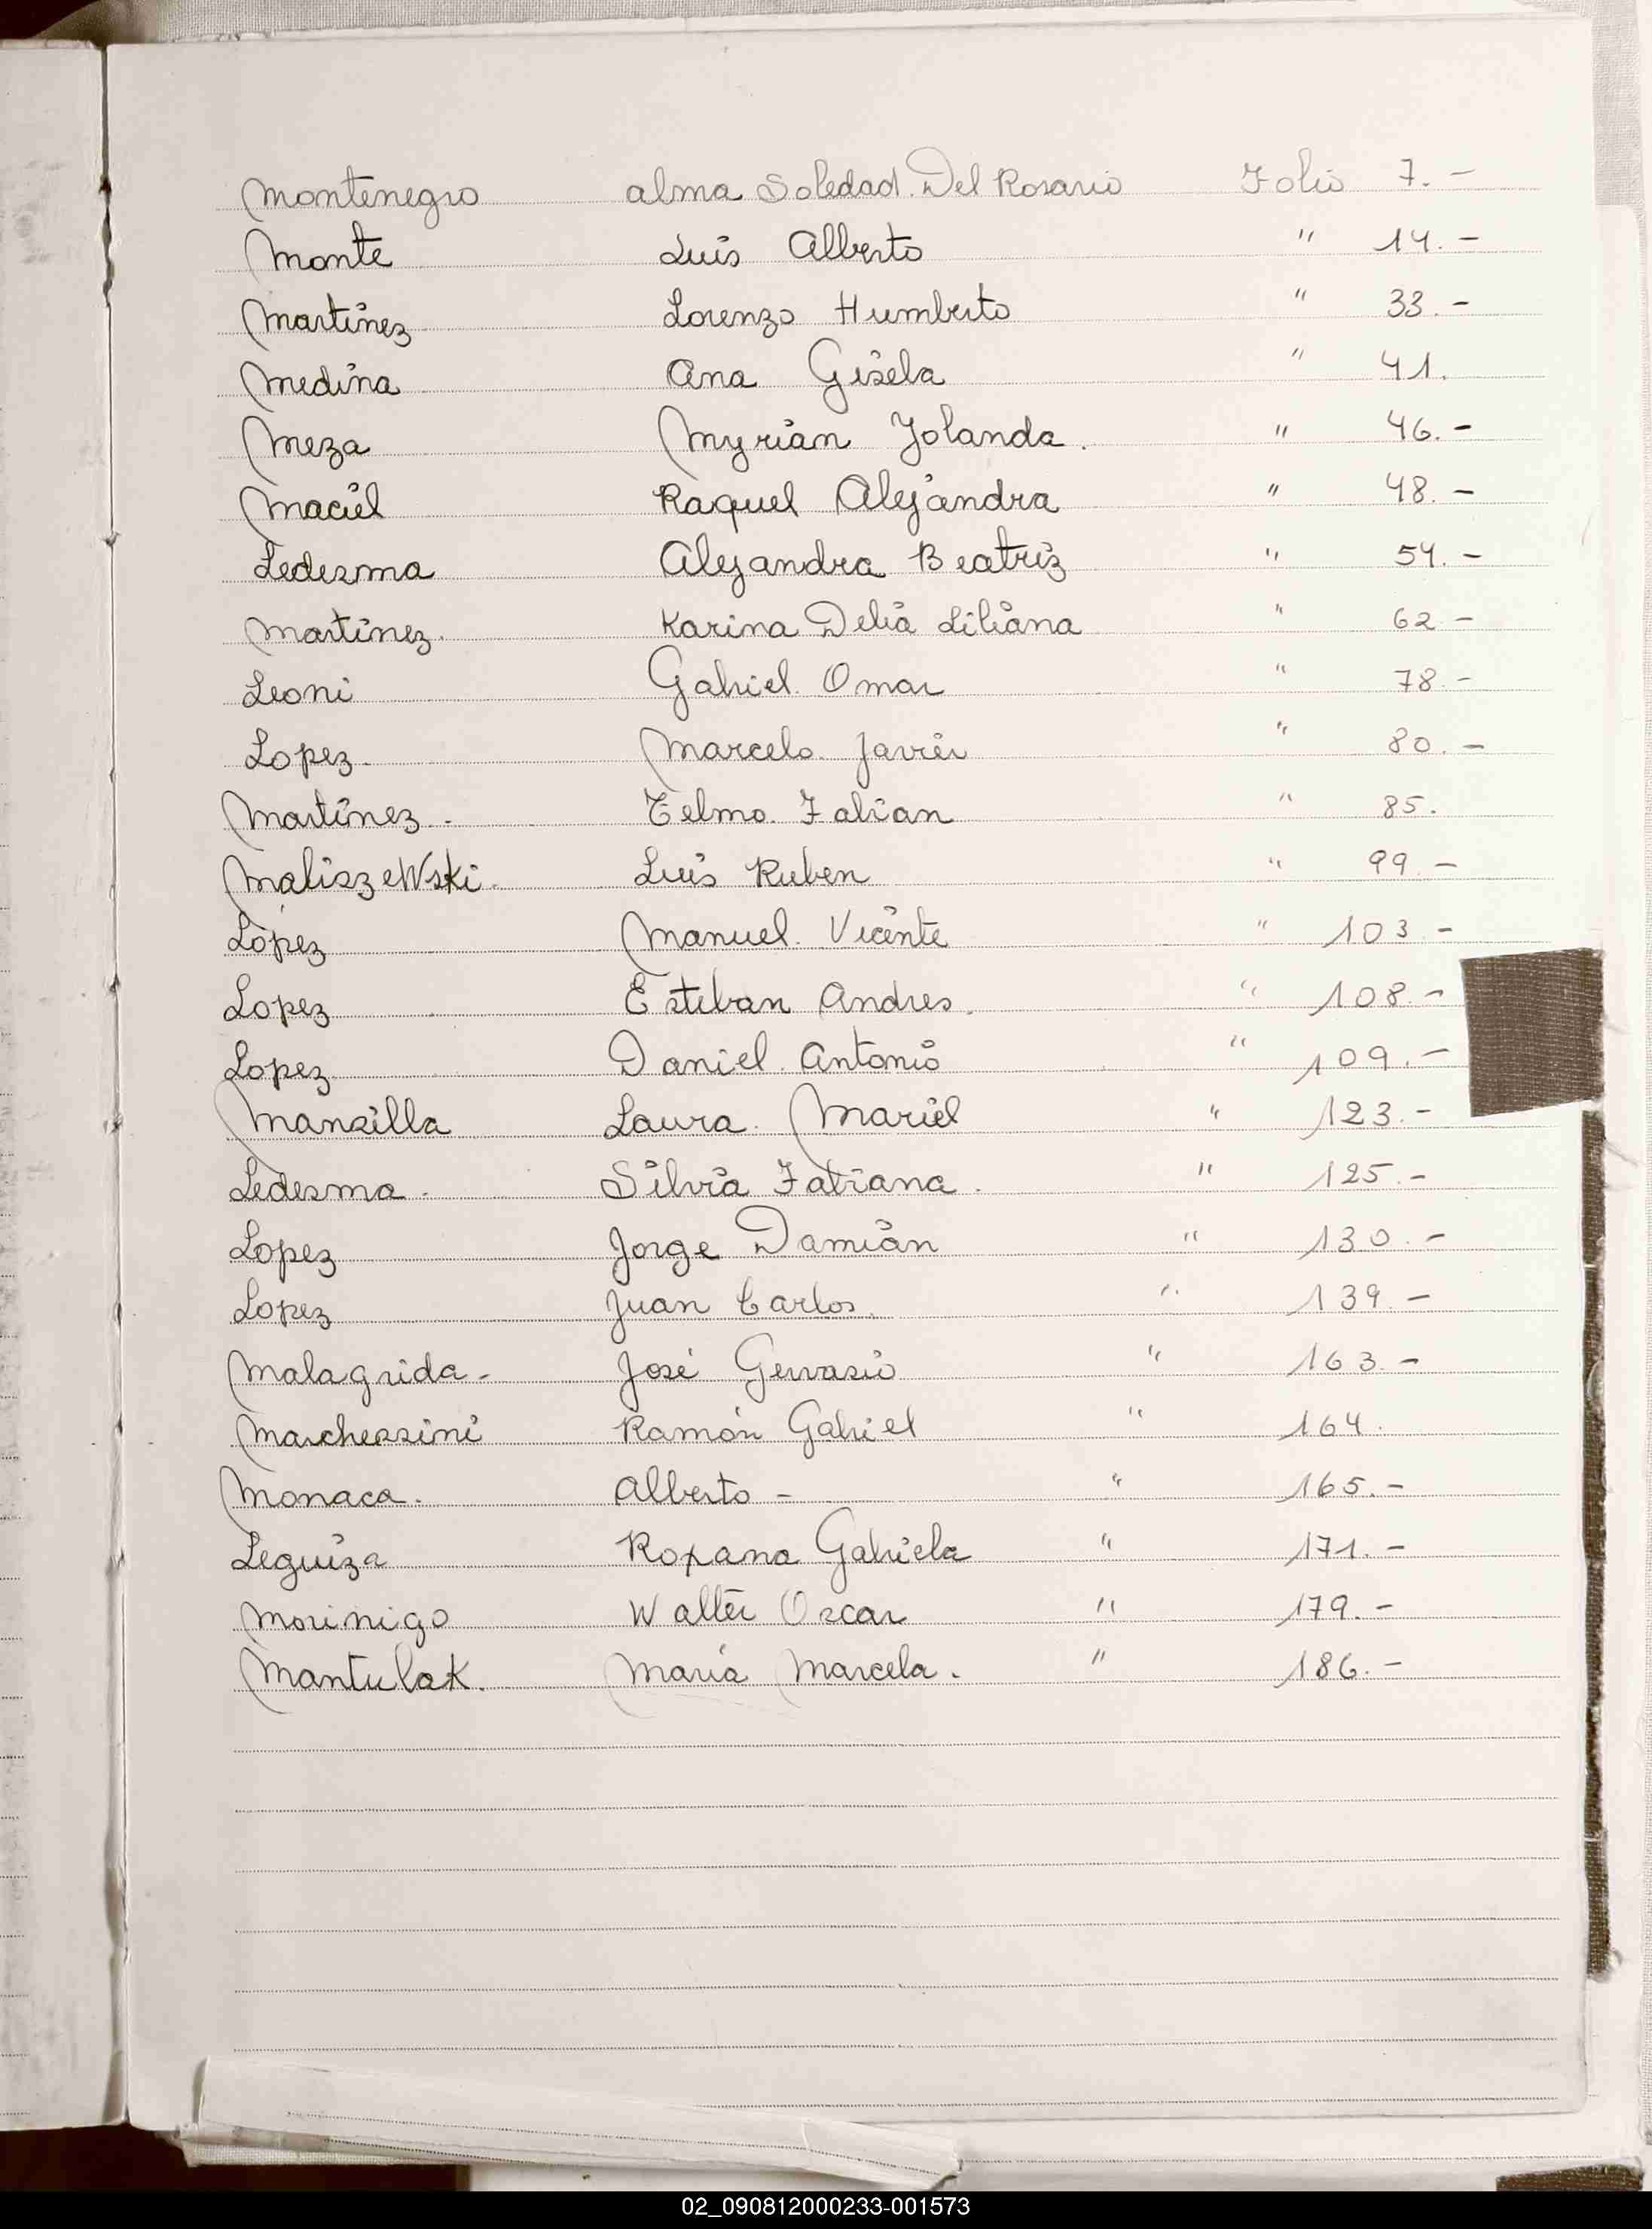 Montenegro alma Soledad. Del Rosario Folio 7.-
Monte Luis Alberto " 14.-
Martinez Lorenzo Humberto " 33.-
Medina Ana Gisela " 41.
Meza Myrian Yolanda. " 46.-
Maciel Raquel Alejandra " 48.-
Ledesma Alejandra Beatriz " 54.-
Martinez. Karina Delia Liliana " 62-
Leoni Gabriel. Omar " 78.-
Lopez. Marcelo. Javier " 80.-
Martinez. Telmo. Fabian " 85.
Maliszewski. Luis Ruben " 99.-
López Manuel. Vicente " 103-
Lopez Esteban Andres. " 108.-
Lopez Daniel. Antonio " 109.-
Mansilla Laura. Mariel " 123.-
Ledesma. Silvia Fabiana. " 125.-
Lopez Jorge Damián " 130.-
Lopez Juan Carlos. " 139.-
Malagrida- José Gervasio " 163-
Marchessini Ramón Gabriel " 164.
Monaca. Alberto- " 165.-
Leguiza Roxana Gabriela " 171.-
Morinigo Walter Oscar " 179.-
Mantulak. María Marcela. " 186.-
02_090812000233-001573